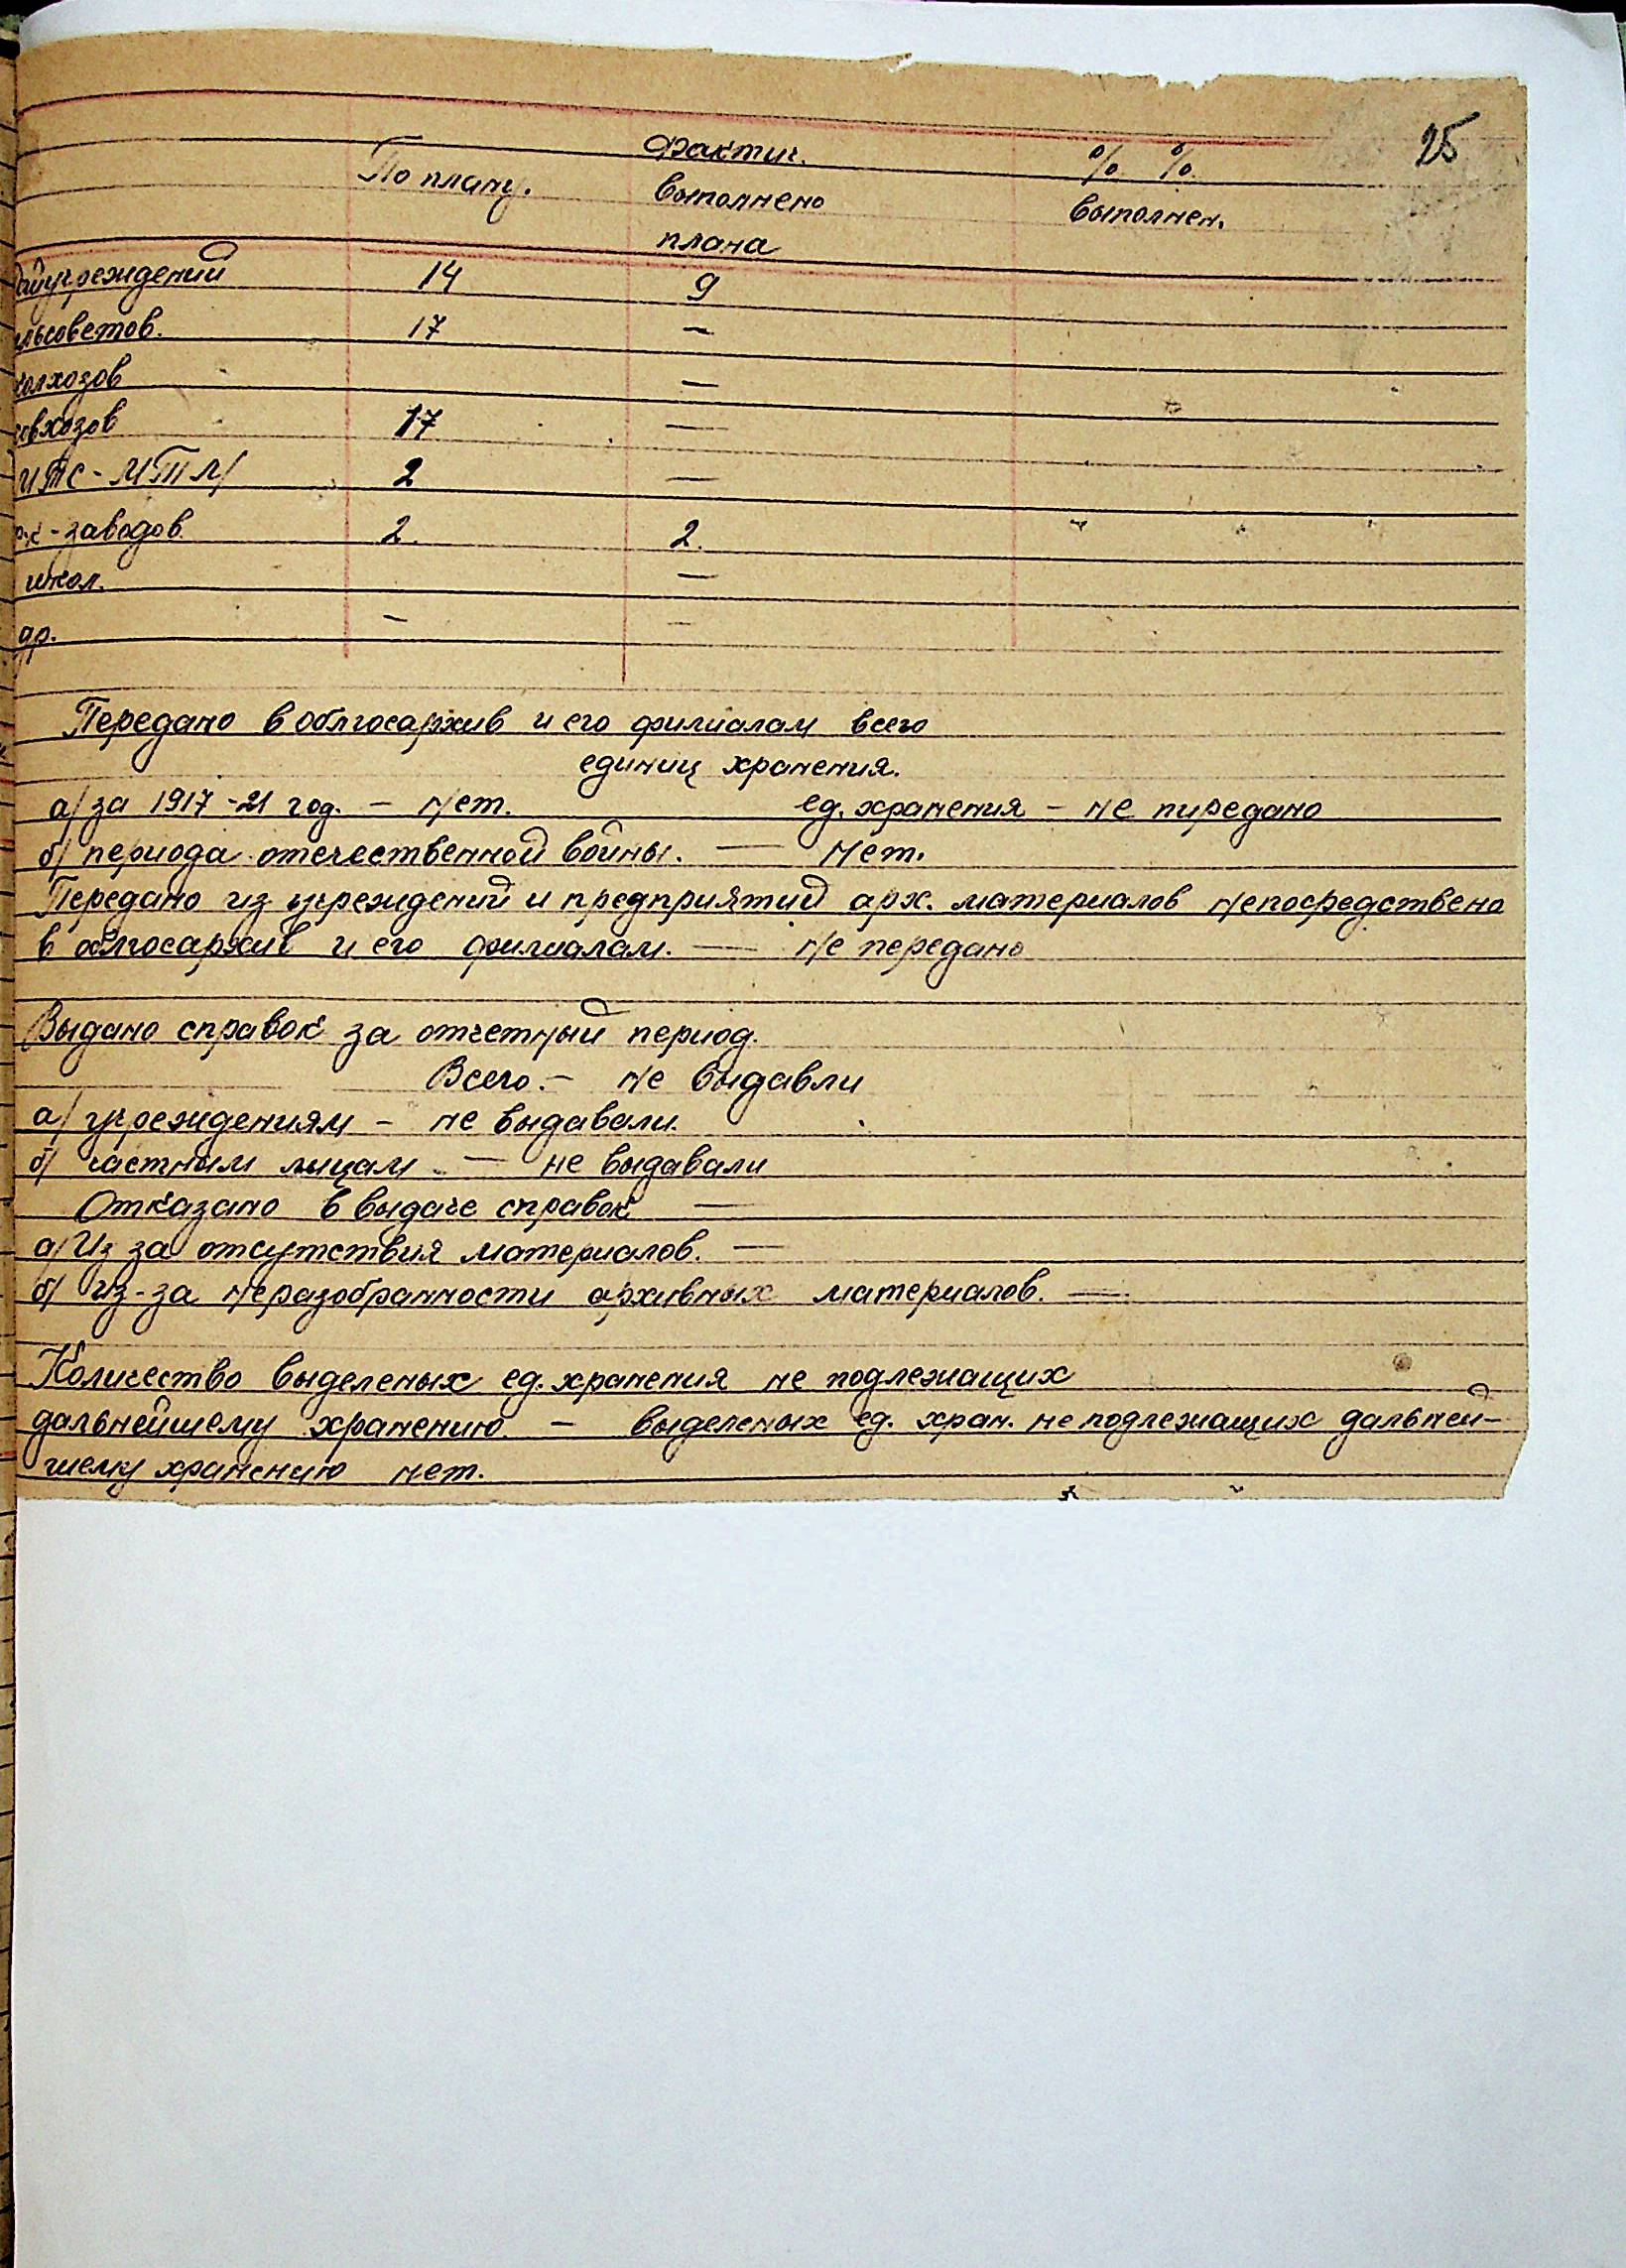 25
Фактич. % %
По плану. выполнено выполнен.
плана
айучреждений 14 9
льсоветов. 17 —
колхозов —
овхозов 17 —
МТС - МТМ/ 2 —
- заводов. 2. 2.
школ. —
др. — —
Передано в облгосархив и его филиалам всего
единиц хранения.
а/ за 1917-21 год. — Нет. ед. хранения — не пиредано
б/ периода отечественной войны. — Нет.
Передано из учреждений и предприятий арх. материалов непосредствено
в облгосархив и его филиалам. — Не передано
Выдано справок за отчетный период.
Всего. — не выдавли
а/ учреждениям — не выдавали.
б/ частным лицам. — не выдавали
Отказано в выдаче справок —
а/ Из за отсутствия материалов. —
б/ из-за неразобранности архивных материалов. —
Количество выделеных ед. хранения не подлежащих
дальнейшему хранению. — выделеных ед. хран. не подлежащих дальней-
шему хранению нет.